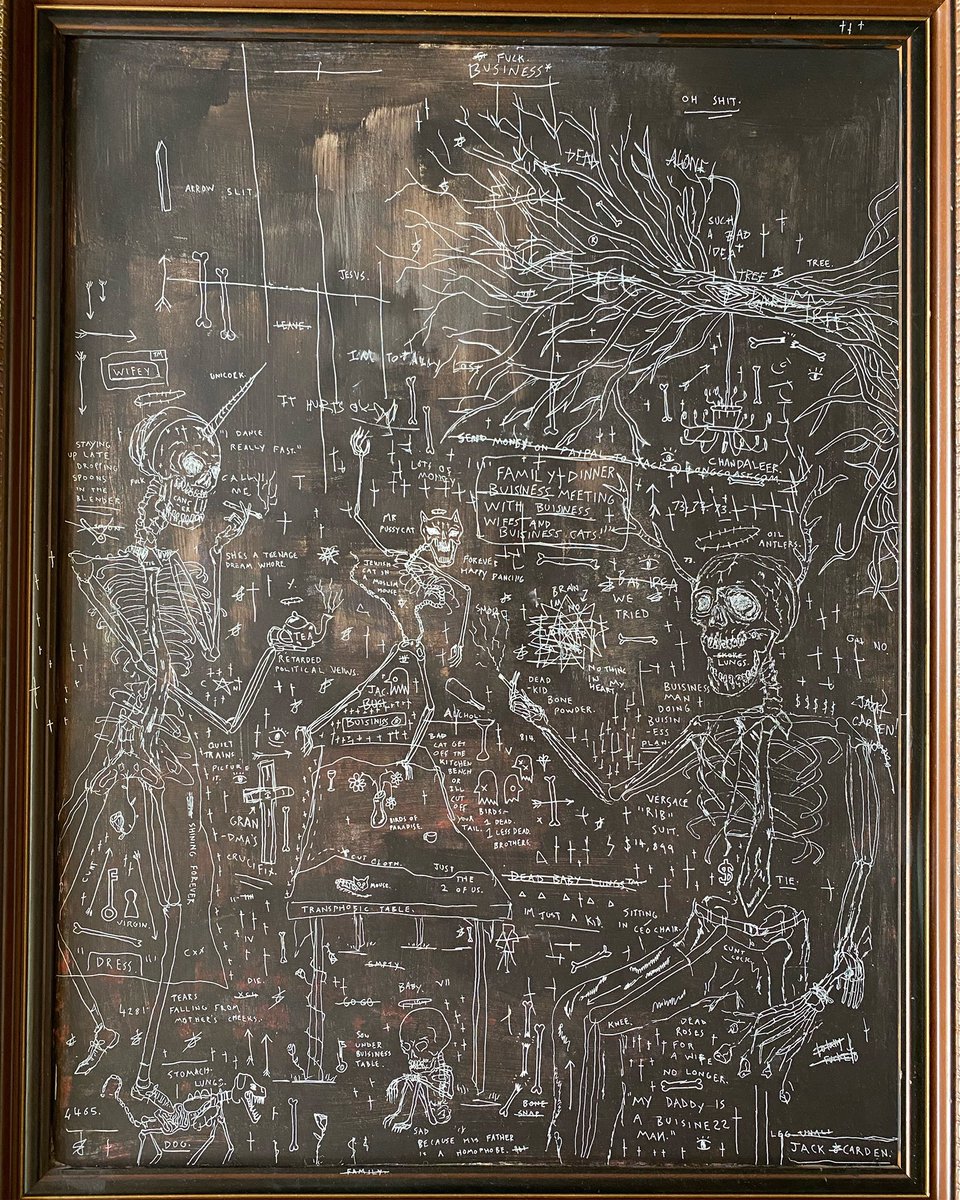 FUCK
BUSINESS*
OH SHIT.
DEAD
ALONE!
ARROW SLIT.
SUCH
A BAD
IDEA
TREE.
TREE
JESUS.
LEAVE.
I'M TOTALLY LOST
WIFEY ™
UNICORK.
IT HURTS
"I DANCE
REALLY FAST."
STAYING
UP LATE
DROPPING
SPOONS
IN THE
BLENDER.
CALL
ME.
LETS GO
MONKEY
SEND MONEY ON PAYPAL TO JACK@
CHANDALEER.
"FAMILY+DINNER
BUISINESS MEETING
WITH BUISNESS
WIFES AND
BUISINESS CATS""
73, 73. 73.
OIL
ANTLERS.
73.
MR
PUSSYCAT
SHES A TEENAGE
DREAM WHORE
JEWISH
CAT IN
MOSLIM
HOUSE
FOREVER
HAPPY DANCING
BAD IDEA
WE
TRIED
BRAIN
SMOKE
LUNGS.
TEA
RETARDED
POLITICAL VEIWS.
NOTHINK
IN MY
HEART
DEAD
-KID
BONE
POWDER.
BUISINESS
MAN
DOING
BUISIN
-ESS
PLAN
$$$$$
JACK
CARDEN
BUISINESS ®
BAD
CAT GET
OFF THE
KITCHEN
BENCH
OR
ILL
CUT
OFF
YOUR
TAIL.
QUIET
TRAINS.
PICTURE
IT.
GRAN
-DMA'S
CRUCIFIX.
SHINING FOREVER.
BIRDS OF
PARADISE.
BIRDS.
1 DEAD.
1 LESS DEAD.
BROTHERS.
VERSACÉ
"RIB"
SUIT.
$14,899
CUT CLOTH.
MOUSE.
JUST
THE
2 OF US.
DEAD BABY LUNGS™
TIE.
TRANSPHOBIC TABLE.
I'M JUST A KID
SITTING
IN CEO CHAIR.
VIRGIN.
"DRESS"
Cxx
DIE.
EMPTY
GO GO
BABY. VII
4281"
TEARS
FALLING FROM
MOTHER'S CHEEKS.
SON
UNDER
BUISINESS
TABLE.
KNEE.
DEAD
ROSES
FOR
A WIFE
NO LONGER.
STOMACH
LUNGS.
4465.
DOG.
BONE
SNAP
"MY DADDY IS
A BUISINE22
MAN."
SAD
BECAUSE HIS FATHER
IS A HOMOPHOBE.
JACK CARDEN.
FAMILY.